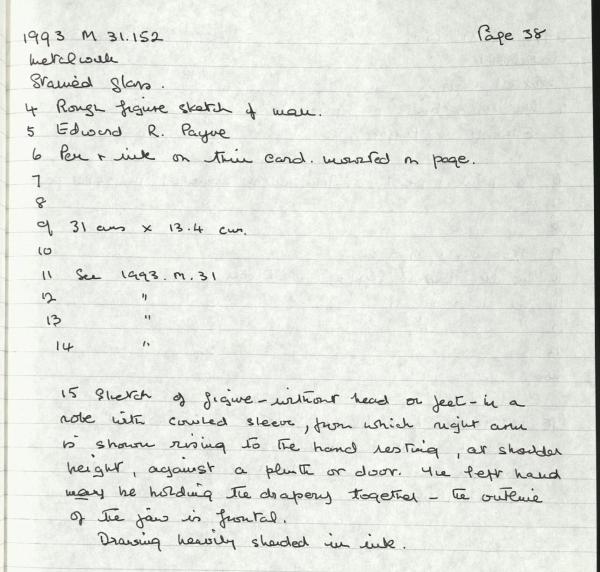 1993 M 31.152 Page 38
Metalwork
Stained Glass.
4 Rough figure sketch of man.
5 Edward R. Payne
6 Pen + ink on thin card. mounted on page.
7
8
9 31 cms x 13.4 cm.
10
11 See 1993.M.31
12 "
13 "
14 "
15 Sketch of figure - without head or feet - in a
robe with cowled sleeve, from which right arm
is shown rising to the hand resting, at shoulder
height, against a plinth or door. The left hand
may be holding the drapery together - the outline
of the jaw is frontal.
Drawing heavily shaded in ink.